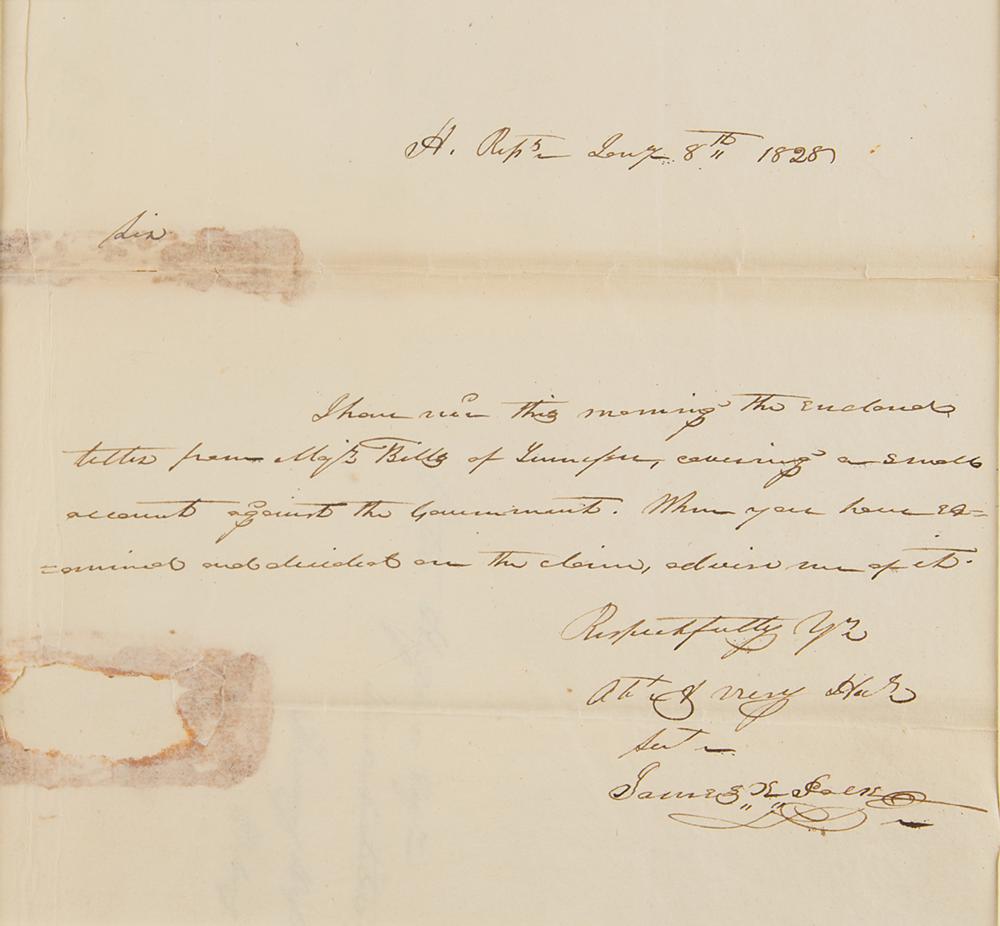 H. Reps. Jany. 8th 1828
Sir
I have recd. this morning the enclosed
letter from Majr. Bills of Tennessee, covering a small
account against the Government. When you have ex=
=amined and decided on the claim, advise me of it.
Respectfully Yr.
Obt. & very Hu.
Sert.
James K. Polk